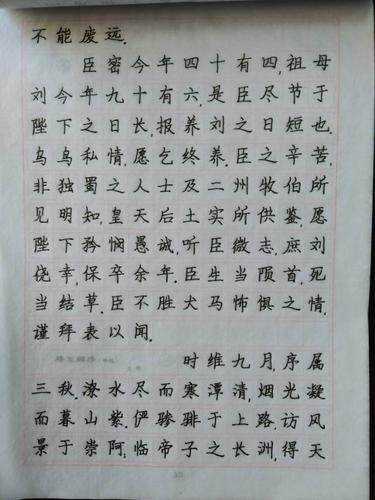 不能废远.
臣密今年四十有四,祖母
刘今年九十有六,是臣尽节于
陛下之日长,报养刘之日短也.
乌乌私情,愿乞终养.臣之辛苦,
非独蜀之人士及二州牧伯所
见明知,皇天后土实所供鉴,愿
陛下矜悯愚诚,听臣微志,庶刘
侥幸,保卒余年.臣生当陨首,死
当结草.臣不胜犬马怖惧之情,
谨拜表以闻.
时维九月,序属
三秋.潦水尽而寒潭清,烟光凝
而暮山紫,俨骖騑于上路,访风
景于崇阿,临帝子之长洲,得天